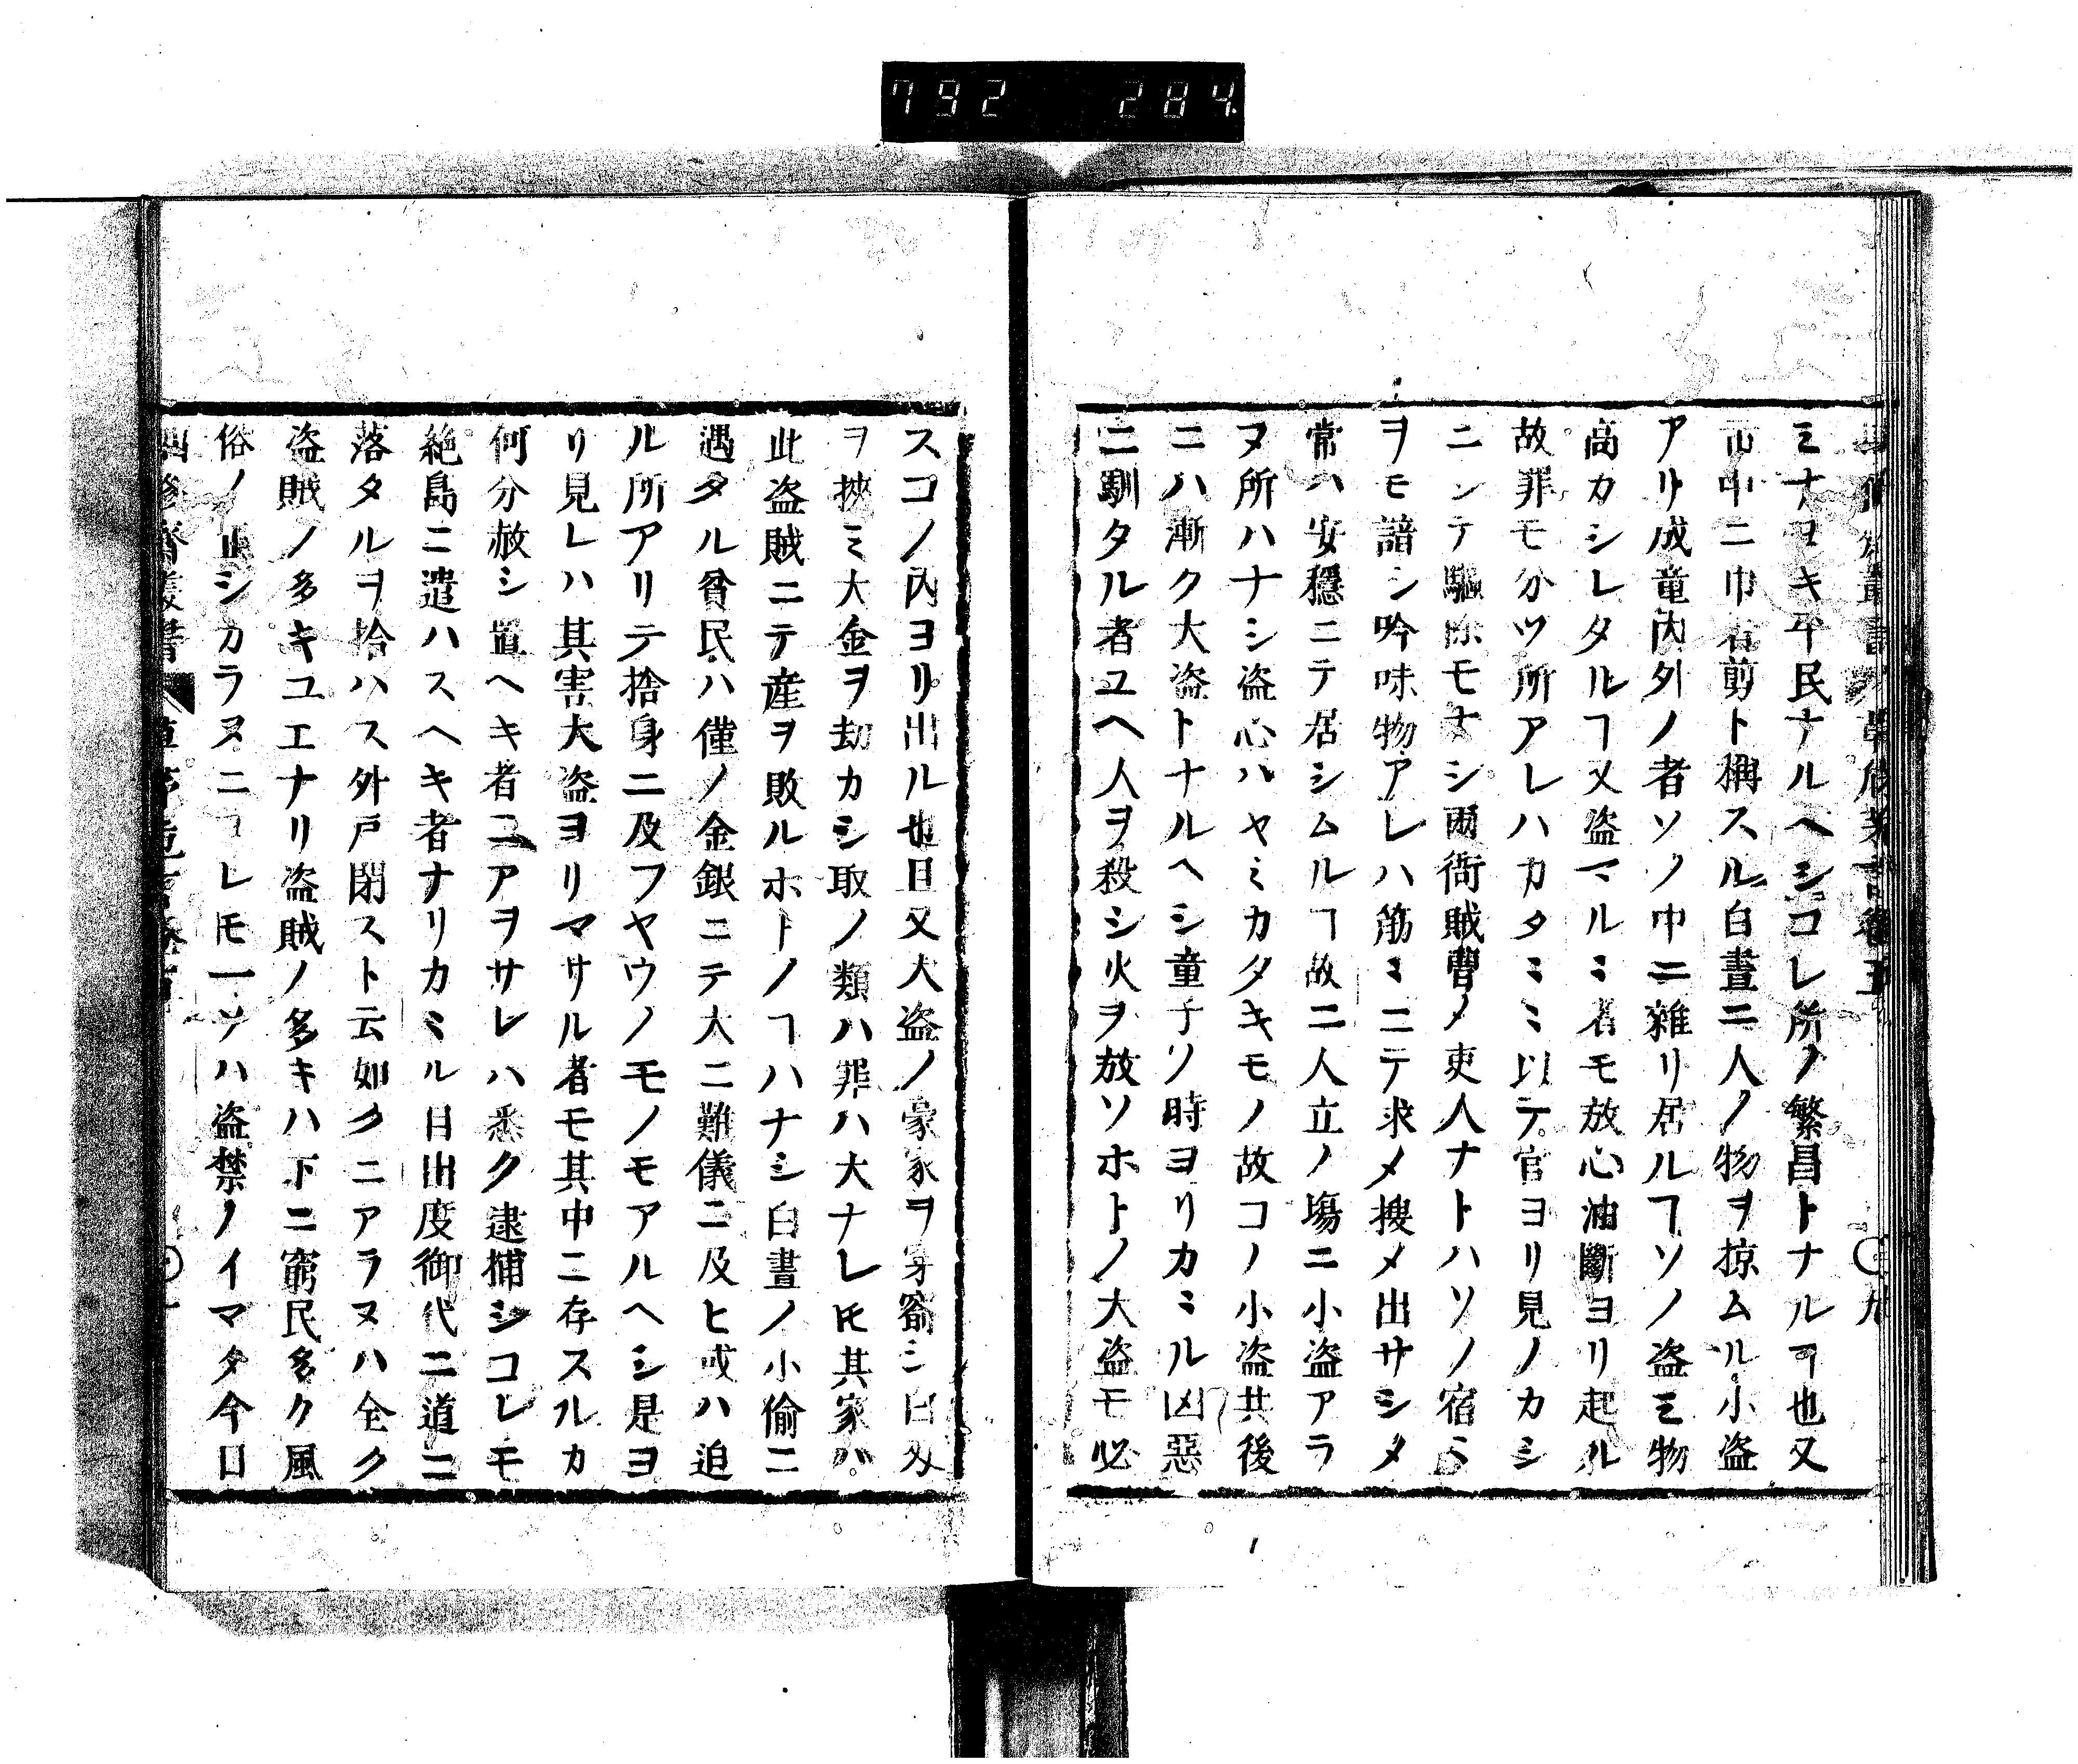 792 284
ミナヨキ平民ナルヘシコレ所ノ繁昌トナルヿ也又
市中ニ巾着剪ト構スル白晝ニ人ノ物ヲ掠ムル小盗
アリ成童內外ノ者ソノ中ニ雜リ居ルヿソノ盗ミ物
高カシレタルヿ又盗マルミ者モ放心油斷ヨリ起ル
故罪モ分ツ所アレハカタミミ以テ官ヨリ見ノカシ
ニシテ驅除モナシ爾衙賊曹ノ吏人ナトハソノ宿ミ
ヲモ諳シ吟味物アレハ筋ミニテ求メ搜メ出サシメ
常ハ安穩ニテ居シムルヿ故ニ人立ノ塲ニ小盗アラ
ヌ所ハナシ盗心ハヤミカタキモノ故コノ小盗其後
ニハ漸ク大盗トナルヘシ童子ソ時ヨリカミル凶惡
ニ馴タル者ユヘ人ヲ殺シ火ヲ放ソホトノ大盗モ必
スコノ內ヨリ出ル也且又大盗ノ豪家ヲ穿窬シ白刄
ヲ挾ミ大金ヲ劫カシ取ノ類ハ罪ハ大ナレ𪜈其家ハ
此盗賊ニテ産ヲ敗ルホトノヿハナシ白晝ノ小偷ニ
遇タル貧民ハ僅ノ金銀ニテ大ニ難儀ニ及ヒ或ハ追
ル所アリテ捨身ニ及フヤウノモノモアルヘシ是ヨ
リ見レハ其害大盗ヨリマサル者モ其中ニ存スルカ
何分赦シ置ヘキ者ニアヲサレハ悉ク逮捕シコレモ
絶島ニ遣ハスヘキ者ナリカミル目出度御代ニ道ニ
落タルヲ拾ハス外戸閉スト云如クニアラヌハ全ク
盗賊ノ多キユエナリ盗賊ノ多キハ下ニ窮民多ク風
俗ノ正シカラヌニヿレ𪜈一ツハ盗禁ノイマタ今日